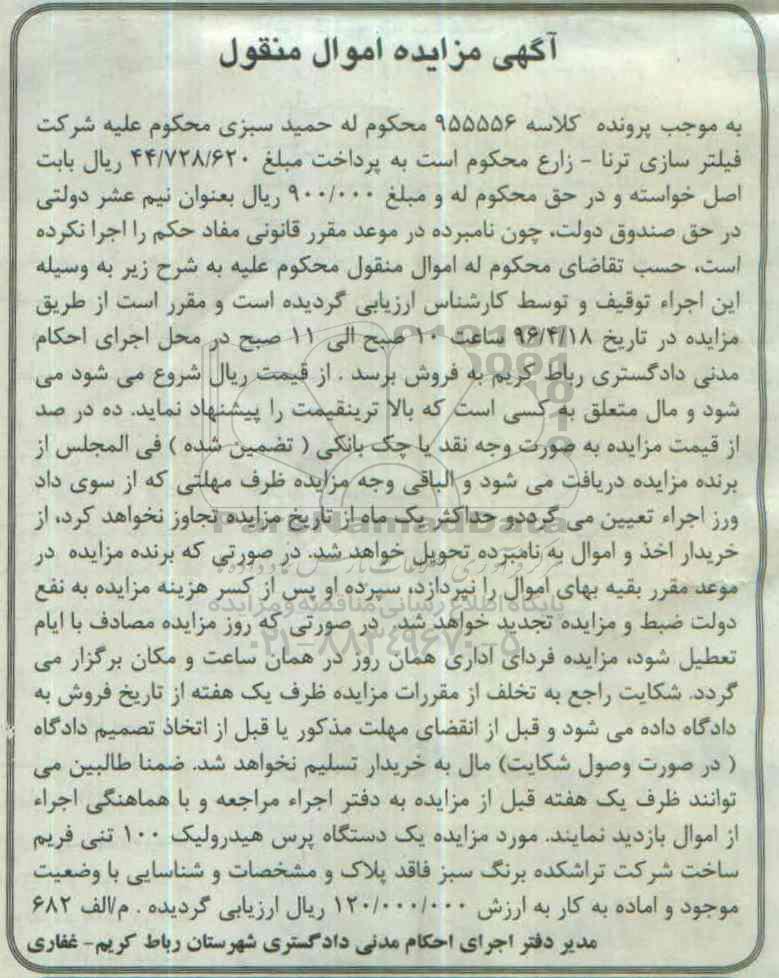 آگهی مزایده اموال منقول
به موجب پرونده کلاسه ۹۵۵۵۵۶ محکوم له حمید سبزی محکوم علیه شرکت
فیلتر سازی ترنا - زارع محکوم است به پرداخت مبلغ ۴۴/۷۲۸/۶۲۰ ریال بابت
اصل خواسته و در حق محکوم له و مبلغ ۹۰۰/۰۰۰ ریال بعنوان نیم عشر دولتی
در حق صندوق دولت، چون نامبرده در موعد مقرر قانونی مفاد حکم را اجرا نکرده
است، حسب تقاضای محکوم له اموال منقول محکوم علیه به شرح زیر به وسیله
این اجراء توقیف و توسط کارشناس ارزیابی گردیده است و مقرر است از طریق
مزایده در تاریخ ۹۶/۴/۱۸ ساعت ۱۰ صبح الی ۱۱ صبح در محل اجرای احکام
مدنی دادگستری رباط کریم به فروش برسد . از قیمت ریال شروع می شود می
شود و مال متعلق به کسی است که بالا ترینقیمت را پیشنهاد نماید. ده در صد
از قیمت مزایده به صورت وجه نقد یا چک بانکی ( تضمین شده ) فی المجلس از
برنده مزایده دریافت می شود و الباقی وجه مزایده ظرف مهلتی که از سوی داد
ورز اجراء تعیین می گرددو حداکثر یک ماه از تاریخ مزایده تجاوز نخواهد کرد، از
خریدار اخذ و اموال به نامبرده تحویل خواهد شد. در صورتی که برنده مزایده در
موعد مقرر بقیه بهای اموال را نپردازد، سپرده او پس از کسر هزینه مزایده به نفع
دولت ضبط و مزایده تجدید خواهد شد. در صورتی که روز مزایده مصادف با ایام
تعطیل شود، مزایده فردای اداری همان روز در همان ساعت و مکان برگزار می
گردد. شکایت راجع به تخلف از مقررات مزایده ظرف یک هفته از تاریخ فروش به
دادگاه داده می شود و قبل از انقضای مهلت مذکور یا قبل از اتخاذ تصمیم دادگاه
( در صورت وصول شکایت) مال به خریدار تسلیم نخواهد شد. ضمنا طالبین می
توانند ظرف یک هفته قبل از مزایده به دفتر اجراء مراجعه و با هماهنگی اجراء
از اموال بازدید نمایند. مورد مزایده یک دستگاه پرس هیدرولیک ۱۰۰ تنی فریم
ساخت شرکت تراشکده برنگ سبز فاقد پلاک و مشخصات و شناسایی با وضعیت
موجود و اماده به کار به ارزش ۱۲۰/۰۰۰/۰۰۰ ریال ارزیابی گردیده . م/الف ۶۸۲
مدیر دفتر اجرای احکام مدنی دادگستری شهرستان رباط کریم- غفاری
ParsNamadData
پایگاه اطلاع رسانی مناقصه و مزایده
۰۲۱-۸۸۳۴۹۶۷۰-۵